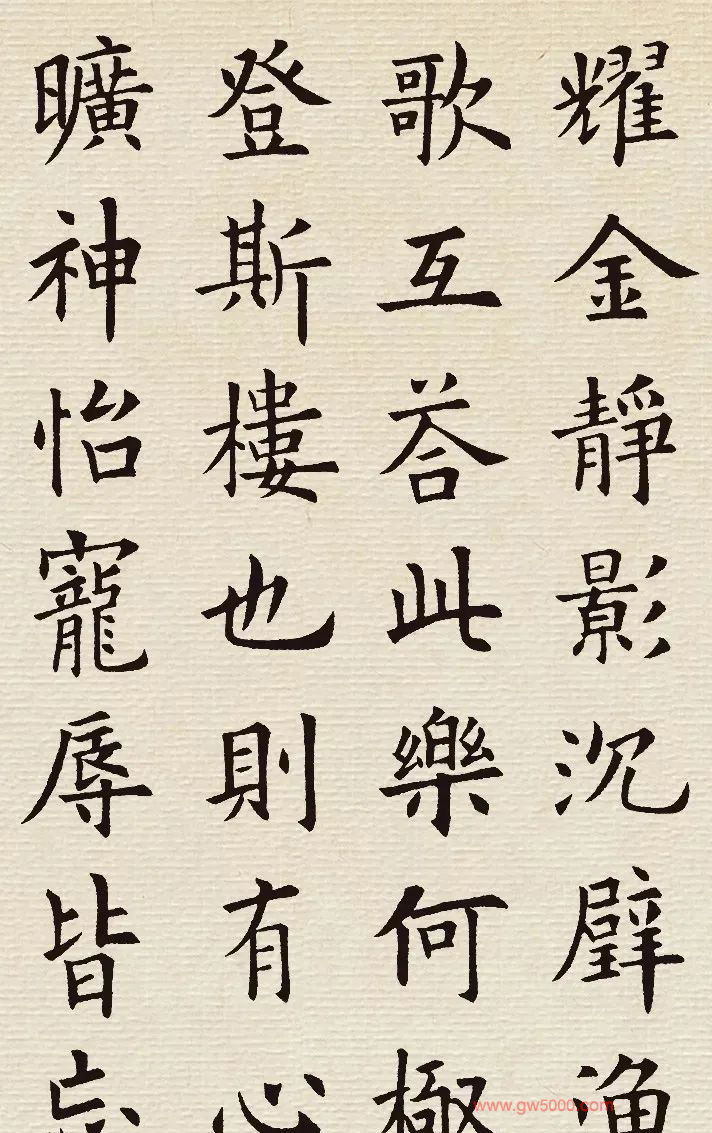 耀金靜影沉璧漁
歌互荅此樂何極
登斯樓也則有心
曠神怡寵辱皆忘
www.gw5000.com